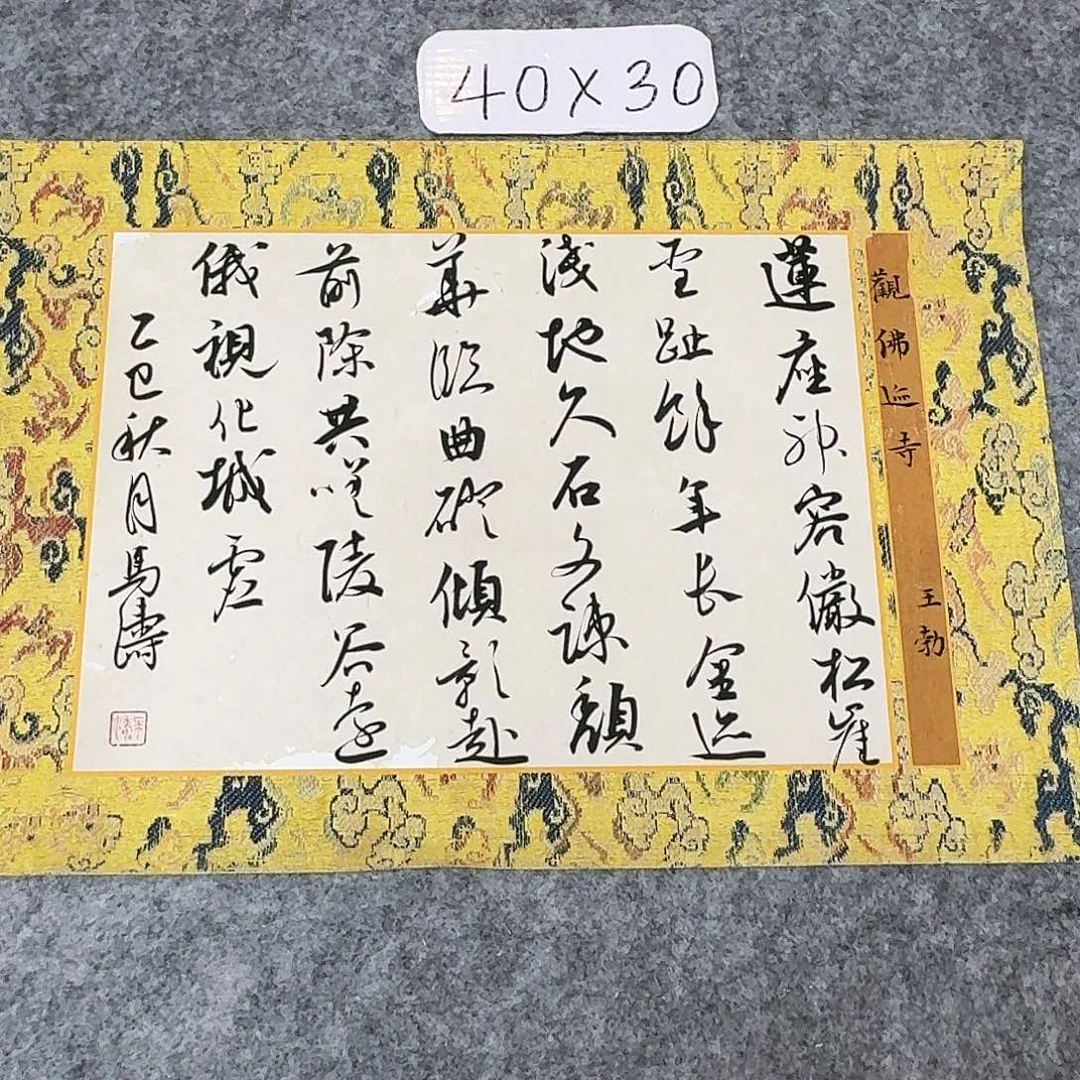 40X30
觀佛迹寺 王勃
蓮座神容儼松崖
聖趾餘年长金迹
淺地久石文疎頹
華臨曲磴傾影赴
前除共嗟陵谷遠
俄視化城虛
乙巳秋月馬濤